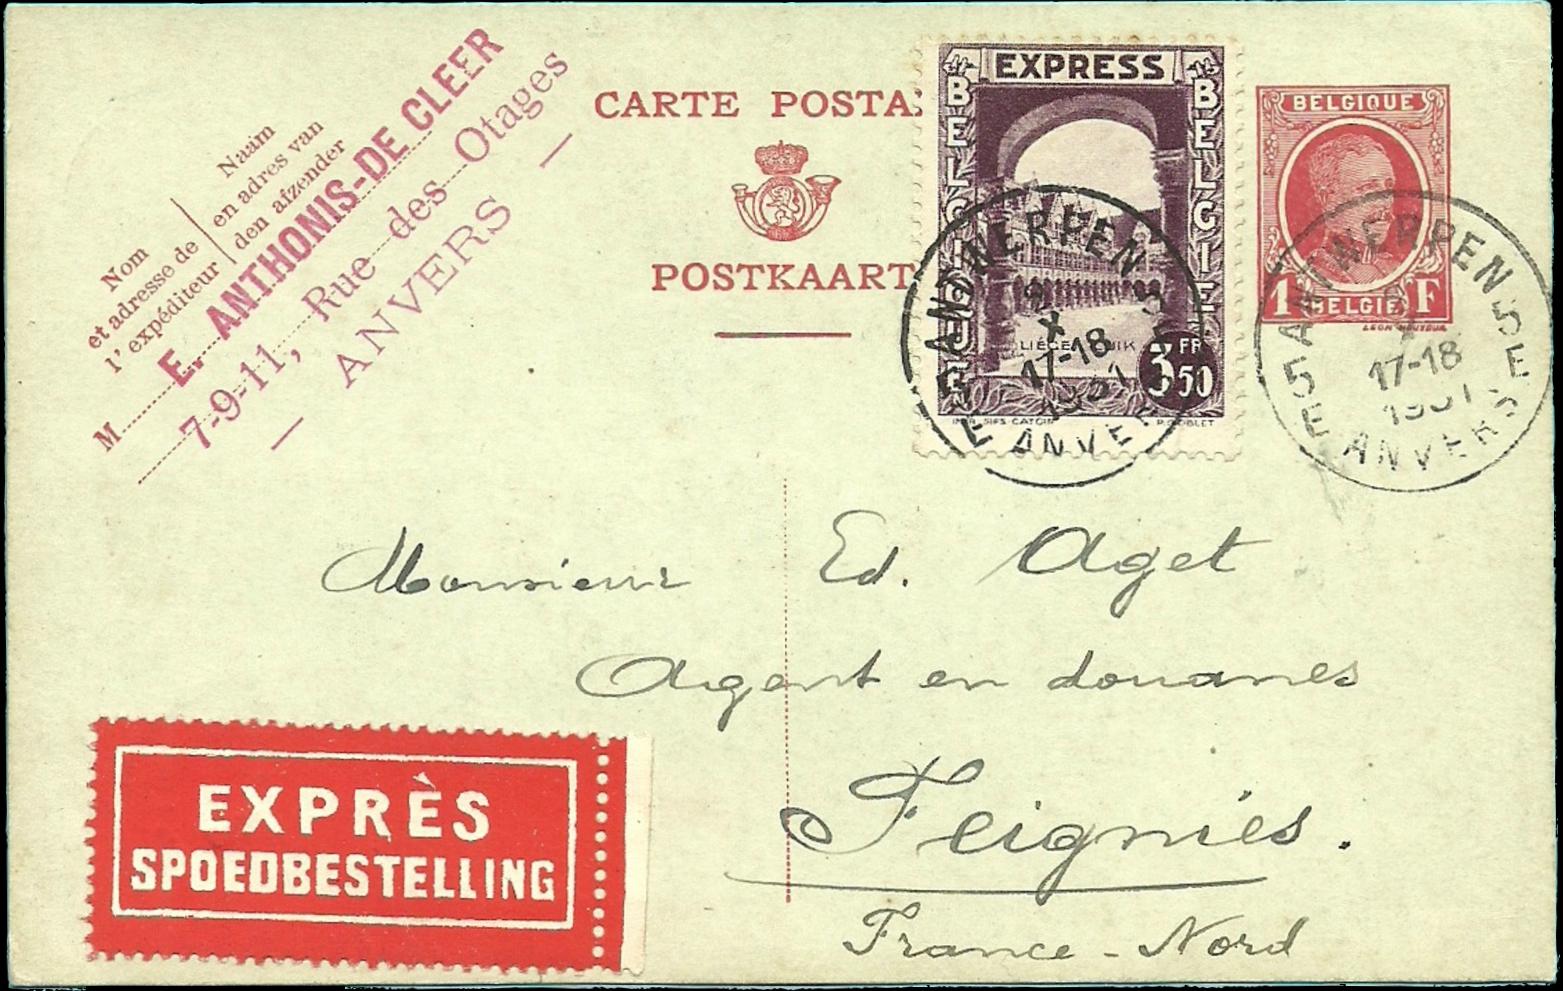 CARTE POSTA
POSTKAART
Nom
et adresse de
l'expéditeur
Naam
en adres van
den afzender
M
E. ANTHONIS-DE CLEER
7-9-11, Rue des Otages
— ANVERS —
EXPRESS
BELGIQUE
BELGIE
LIÉGE LUIK
3 FR 50
P. GOBLET
BELGIQUE
1 F
BELGIË
LEON HOUYOUX
ANTWERPEN 5
X
17-18
1931
E ANVERS
5 ANTWERPEN 5
X
17-18
1931
E ANVERS E
Monsieur Ed. Aget
Agent en douanes
Feignies.
France - Nord
EXPRÈS
SPOEDBESTELLING